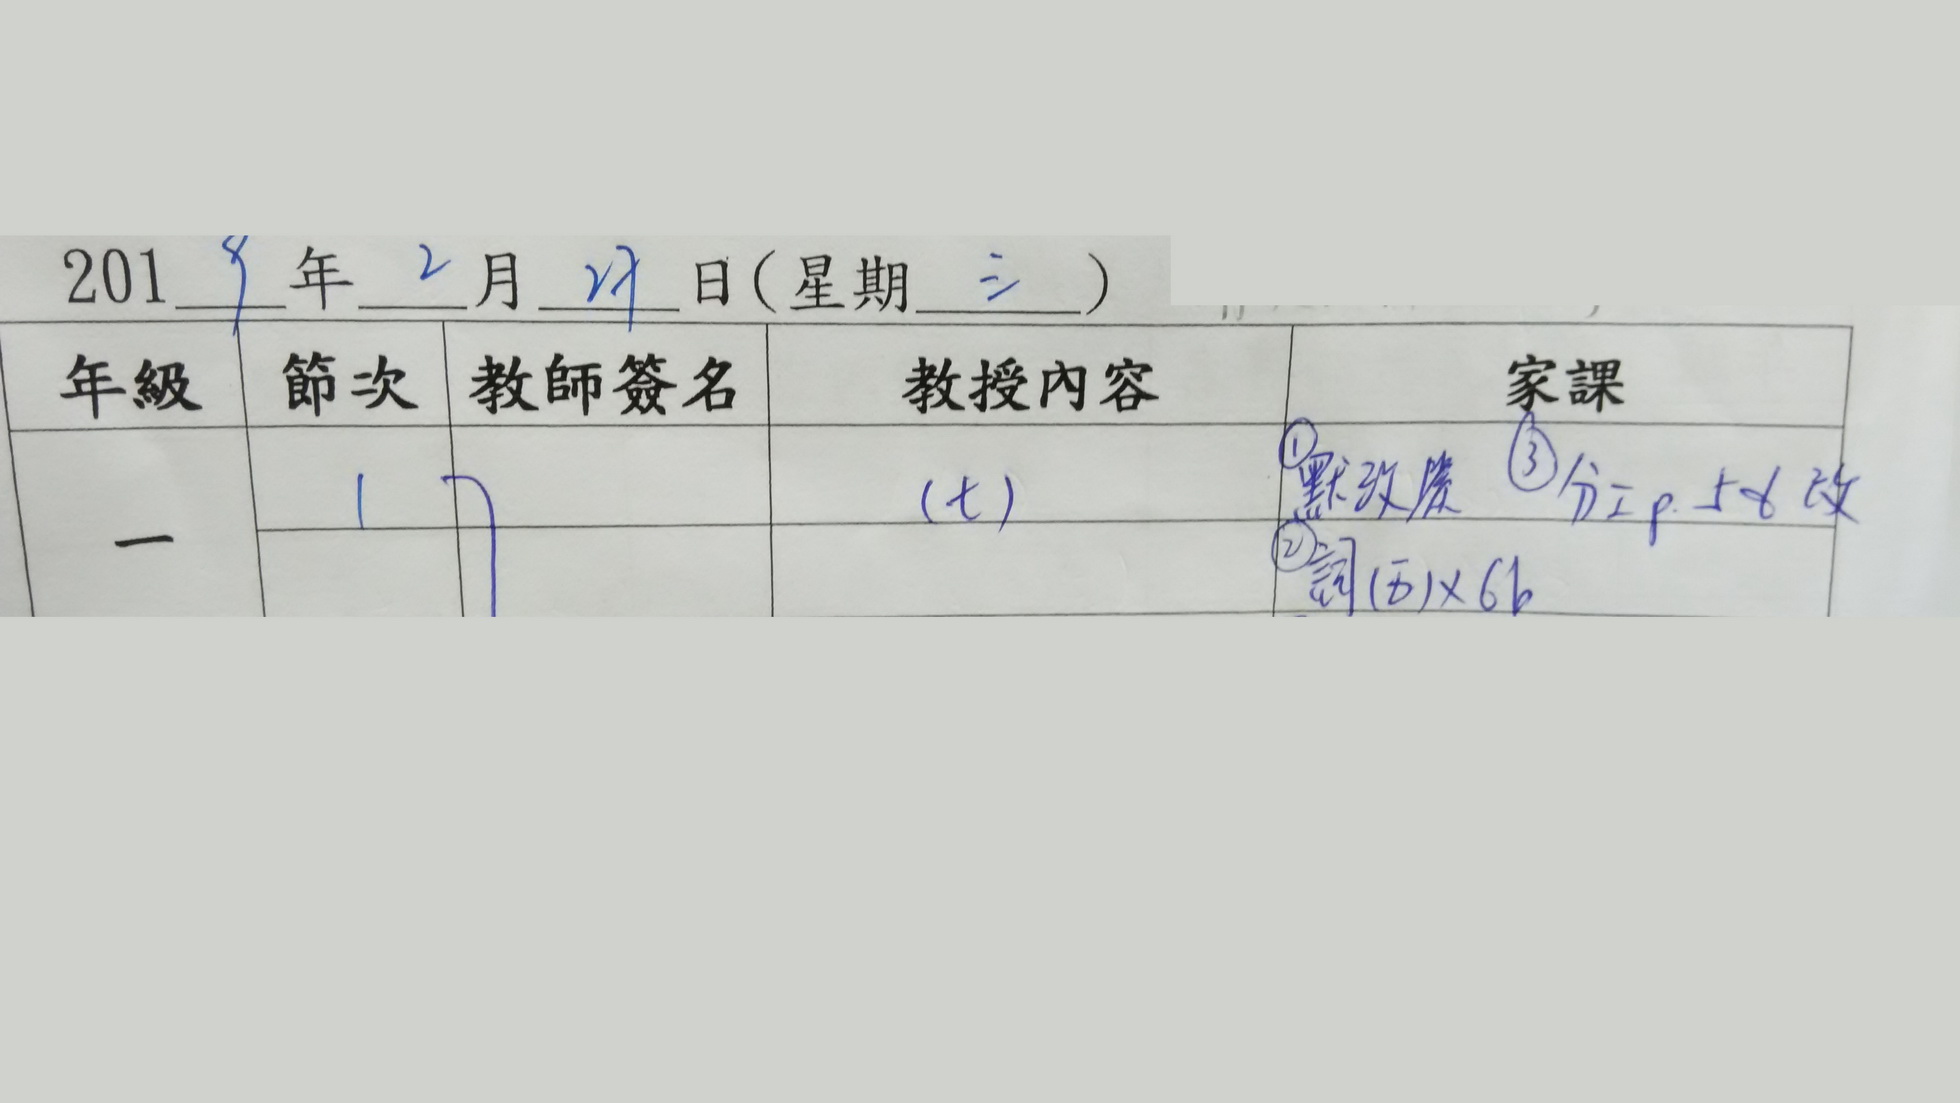 2019年2月27日(星期三)
年級 節次 教師簽名 教授內容 家課
一 1 (七) ①默改 ③分工p.56改
②詞(五)×6b